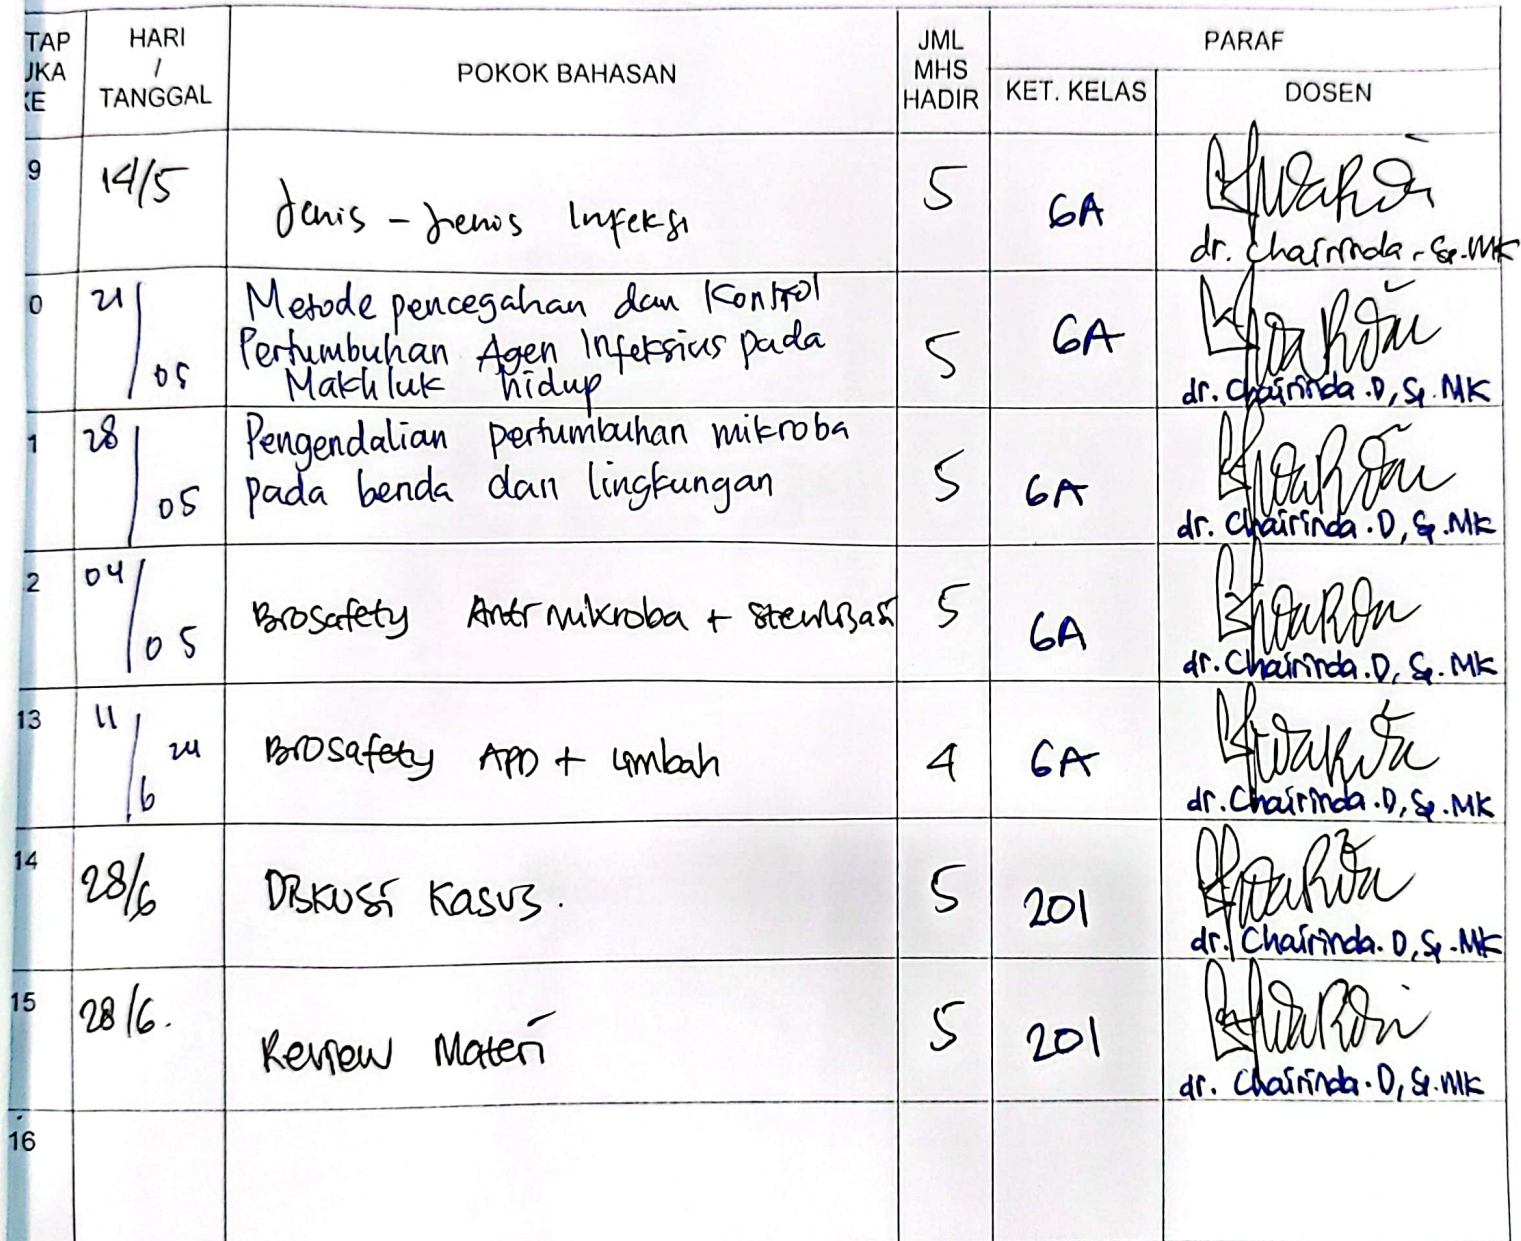 TAP HARI JML PARAF
UKA / POKOK BAHASAN MHS
KE TANGGAL HADIR KET. KELAS DOSEN
9 14/5 Jenis - Jenis Infeksi 5 6A
dr. Chairinda, Sp.MK
0 21/05 Metode pencegahan dan Kontrol
Pertumbuhan Agen Infeksius pada 5 6A
Makhluk hidup dr. Chairinda.D, Sp.MK
1 28/05 Pengendalian pertumbuhan mikroba
pada benda dan lingkungan 5 6A
dr. Chairinda.D, Sp.MK
2 04/05 Biosafety Antimikroba + sterilisasi 5 6A
dr. Chairinda.D, Sp.MK
13 11/6 24 Biosafety APD + Limbah 4 6A
dr. Chairinda.D, Sp.MK
14 28/6 Diskusi Kasus. 5 201
dr. Chairinda.D, Sp.MK
15 28/6. Review Materi 5 201
dr. Chairinda.D, Sp.MK
16